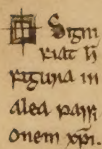 Signi
ficat h̄
figura in
alea pass
onem xp̄i.